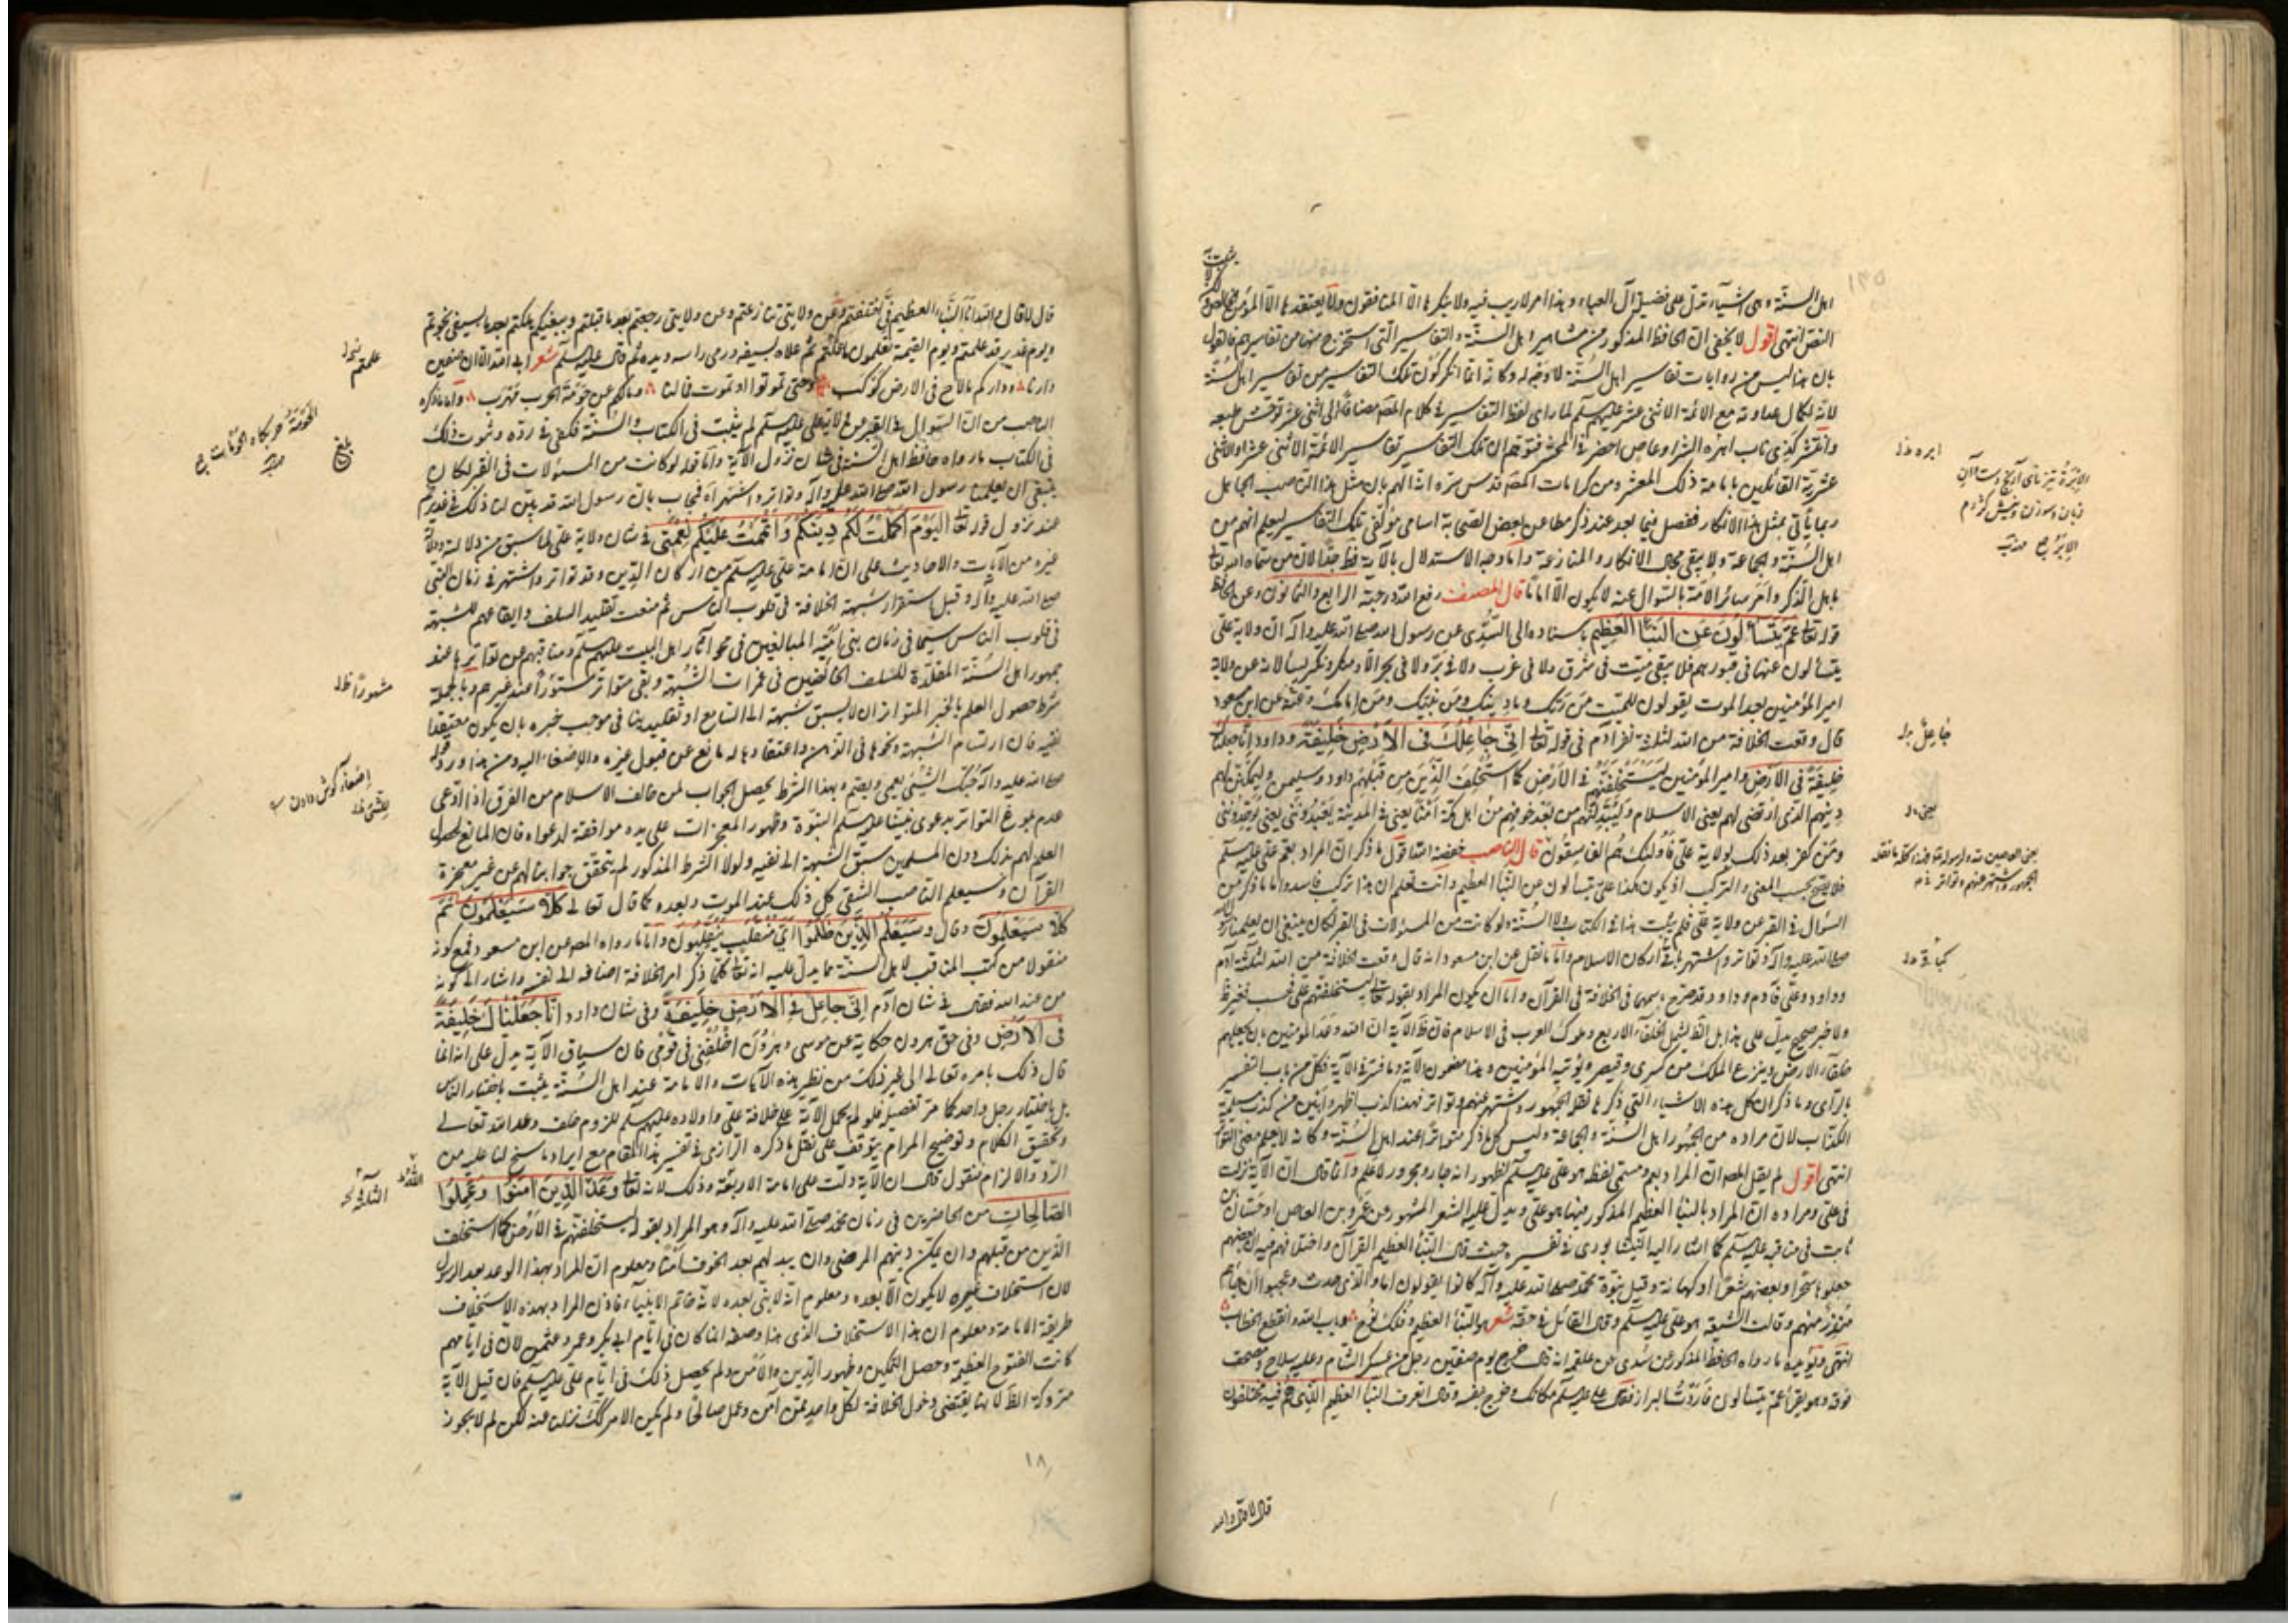 اهل السنة هى اشياء تدل على فضيلة آل العباء و هذا امر لا ريب فيه ولا ينكره الا المنافقون ولا يعتقده الا المؤمنون
النص انتهى اقول لا يخفى ان الحافظ المذكور من مشاهير اهل السنة والتفاسير التى استخرج منها من تفاسيرهم فالقول
بان هذا ليس من روايات تفاسير اهل السنة لا وجه له وكانه انما انكر كون تلك التفاسير من تفاسير اهل السنة
لانه لكمال عداوته مع الائمة الاثنى عشر عليهم السلم لما راى لفظ التفاسير فى كلام المصنف مضافا الى اثنى عشر توحش طبعه
فتوهم ان تلك التفاسير تفاسير الائمة الاثنى عشر او الاثنى
عشرية القائلين بامامة ذلك المعشر ومن كرامات المصنف قدس سره انه الهم بان مثل هذا الناصب الجاهل
ربما ياتى بمثل هذا الانكار ففصل فيما بعد عند ذكر مطاعن بعض الصحابة اسامى مؤلفى تلك التفاسير ليعلم انهم من
اهل السنة والجماعة ولا يبقى مجال الانكار والمنازعة واما وجه الاستدلال بالآية فظ جدا لان من سماه الله تعالى
باهل الذكر وامر سائر الامة بالسؤال عنه لا يكون الا اماما قال المصنف رفع الله درجته الرابع والثمانون وعن الحافظ
قوله تعالى عم يتساءلون عن النبأ العظيم باسناده الى السدى عن رسول الله صلى الله عليه وآله ان ولاية على
يتسألون عنها فى قبورهم فلا يبقى ميت فى شرق ولا فى غرب ولا فى بر ولا فى بحر الا ومنكر ونكير يسألانه عن ولاية
امير المؤمنين بعد الموت يقولون للميت من ربك وما دينك ومن نبيك ومن امامك وعنه عن ابن مسعود
قال وقعت الخلافة من الله لثلثة نفر آدم فى قوله تعالى انى جاعلك فى الارض خليفة وداود انا جعلناك
خليفة فى الارض وامير المؤمنين ليستخلفنهم فى الارض كما استخلف الذين من قبلهم داود وسليمن وليمكنن لهم
دينهم الذى ارتضى لهم يعنى الاسلام وليبدلنهم من بعد خوفهم من اهل مكة امنا يعنى فى المدينة يعبدوننى يعنى يوحدوننى
ومن كفر بعد ذلك بولاية على فاولئك هم الفاسقون قال الناصب خفضه الله اقول ما ذكر ان المراد بعم على عليه السلم
فلا يصح بحسب المعنى والتركيب اذ يكون هكذا على يتسألون عن النبأ العظيم وانت تعلم ان هذا تركيب فاسد واما ما ذكر من
السؤال فى القبر عن ولاية على فلم يثبت هذا فى الكتاب ولا السنة ولو كانت من المسؤلات فى القبر لكان ينبغى ان يعلمنا رسول الله
صلى الله عليه وآله وتواتر واشتهر باقى اركان الاسلام واما ما نقل عن ابن مسعود انه قال وقعت الخلافة من الله لثلثة آدم
وداود وعلى فآدم وداود قد صرح باسمهما فى الخلافة فى القرآن واما ان يكون المراد بقوله تعالى ليستخلفنهم على فهو غير ظ
ولا خبر صحيح يدل على هذا بل الظ يشمل الخلفاء الاربع وملوك العرب فى الاسلام فان ظ الآية ان الله وعد المؤمنين بان يجعلهم
خلفاء الارض وينزع الملك من كسرى وقيصر ويؤتيه المؤمنين وهذا مضمون الآية وما فسر فى الآية فكل من باب التفسير
بالراى وما ذكر ان كل هذه الاشياء التى ذكرها نقل الجمهور واشتهر عنهم وتواتر فهذا كذب اظهر وابين من كذب مسيلمة
الكذاب لان مراده من الجمهور اهل السنة والجماعة وليس كل ما ذكر متواترا عند اهل السنة وكانه لا يعلم معنى التواتر
انتهى اقول لم يقل المصنف ان المراد بعم ومسمى لفظه هو على عليه السلم لظهور انه جار ومجرور لا علم وانما قال ان الآية نزلت
فى على ومراده ان المراد بالنبأ العظيم المذكور فيها هو على ويدل عليه الشعر المشهور عن عمرو بن العاص او حسان بن
ثابت فى مناقبه عليه السلم كما اشار اليه النيشابورى فى تفسيره حيث قال النبأ العظيم القرآن واختلافهم فيه ان بعضهم
جعلوه سحرا وبعضهم شعرا او كهانة وقيل نبوة محمد صلى الله عليه وآله كانوا يقولون ما هذا الذى حدث وعجبوا ان جاءهم
منذر منهم وقالت الشيعة هو على عليه السلم وقال القائل فى حقه شعر هو النبأ العظيم وفلك نوح وباب الله وانقطع الخطاب
انتهى ويؤيده ما رواه الحافظ المذكور عن سدى عن علقمه انه قال خرج يوم صفين رجل من عسكر الشام وعليه سلاح ومصحف
فوقه وهو يقرأ عم يتسألون فاردت البراز فقال على عليه السلم مكانك وخرج بنفسه وقال اتعرف النبأ العظيم الذى هم فيه مختلفون
يعنى خ ل
قال لا قال والله
قال لا قال والله انا النبأ العظيم الذى فى اختلفتم وعن ولايتى تنازعتم وعن ولايتى رجعتم بعد ما قبلتم وببغيكم هلكتم بعد ما بسيفى نجوتم
ويوم غدير قد علمتم ويوم القيمة تعلمون ما علمتم ثم علاه بسيفه ورمى راسه ويده ثم قال عليه السلم شعر ابى الله الا ان صفين
دارنا وداركم ما لاح فى الارض كوكب وحتى تموتوا او نموت وما لنا وما لكم عن حومة الحرب مهرب واما ما ذكره
الناصب من ان السؤال فى القبر عن ولاية على عليه السلم لم يثبت فى الكتاب والسنة فكفى فى رده وثبوت ذلك
فى الكتاب ما رواه حافظ اهل السنة فى شان نزول الآية واما قوله لو كانت من المسؤلات فى القبر لكان
ينبغى ان يعلمنا رسول الله صلى الله عليه وآله وتواتر واشتهر آه فيجاب بان رسول الله قد بين لنا ذلك فى غدير خم
عند نزول قوله تعالى اليوم اكملت لكم دينكم واتممت عليكم نعمتى فى شان ولاية على لما سبق من دلالته ودلالة
غيره من الآيات والاحاديث على ان امامة على عليه السلم من اركان الدين وقد تواتر واشتهر فى زمان النبى
صلى الله عليه وآله وقبل استقرار شبهة الخلافة فى قلوب الناس ثم منعت تقليد السلف وايقاعهم للشبهة
فى قلوب الناس سيما فى زمان بنى امية المبالغين فى محو آثار اهل البيت عليهم السلم ومناقبهم عن تواترها عند
جمهور اهل السنة المقلدة للسلف الخائضين فى غمرات الشبهة وبقى متواترا مستورا عند غيرهم وبالجملة
شرط حصول العلم بالخبر المتواتر ان لا يسبق شبهة الى السامع او تقليد ينافى موجب خبره بان يكون معتقدا
لنفيه فان ارتسام الشبهة ونحوها فى الذهن واعتقادها له مانع عن قبول غيره والاصغاء اليه ومن هذا ورد قوله
صلى الله عليه وآله حبك الشئ يعمى ويصم وبهذا الشرط يحصل الجواب لمن خالف الاسلام من الفرق اذا ادعى
عدم بلوغ التواتر بدعوى نبينا عليه السلم النبوة وظهور المعجزات على يده موافقة لدعواه فان المانع لحصول
العلم لهم بذلك دون المسلمين سبق الشبهة الى نفيه ولولا الشرط المذكور لم يتحقق جوابنا لهم عن غير معجزة
القرآن وسيعلم الناصب الشقى كل ذلك عند الموت وبعده كما قال تعالى كلا سيعلمون ثم
كلا سيعلمون وقال وسيعلم الذين ظلموا اى منقلب ينقلبون واما ما رواه المصنف عن ابن مسعود فمع كونه
منقولا من كتب المناقب لاهل السنة مما يدل عليه انه تعالى كلما ذكر امر الخلافة اضافه الى نفسه واشار الى كونه
من عند الله فقال فى شان آدم انى جاعل فى الارض خليفة وفى شان داود انا جعلناك خليفة
فى الارض وفى حق هرون حكاية عن موسى وهرون اخلفنى فى قومى فان سياق الآية يدل على انه انما
قال ذلك بامره تعالى الى غير ذلك من نظير هذه الآيات والامامة عند اهل السنة يثبت باختيار الناس
بل باختيار رجل واحد كما مر تفصيله فلو لم يحمل الآية على خلافة على واولاده عليهم السلم للزم خلف وعد الله تعالى
وتحقيق الكلام وتوضيح المرام يتوقف على نقل ما ذكره الرازى فى تفسير هذا المقام مع ايراد ما سنح لنا عليه من
الرد والالزام فنقول قال ان الآية دلت على امامة الاربعة وذلك لانه تعالى وعد الذين آمنوا وعملوا
الصالحات من الحاضرين فى زمان محمد صلى الله عليه وآله وهو المراد بقوله ليستخلفنهم فى الارض كما استخلف
الذين من قبلهم وان يمكن دينهم المرضى وان يبدلهم بعد الخوف امنا ومعلوم ان المراد بهذا الوعد بعد الرسول
لان استخلاف غيره لا يكون الا بعده ومعلوم انه لا نبى بعده لانه خاتم الانبياء فاذن المراد بهذه الاستخلاف
طريقة الامامة ومعلوم ان هذا الاستخلاف الذى هذا وصفه انما كان فى ايام ابى بكر وعمر وعثمن لان فى ايامهم
كانت الفتوح العظيمة وحصل التمكين وظهور الدين والامن ولم يحصل ذلك فى ايام على عليه السلم فان قيل الآية
متروكة الظ لانها يقتضى دخول الخلافة لكل واحد ممن آمن وعمل صالحا ولم يكن الامر كك نزلنا عنه لكن لم لا يجوز
علمتم
بلغ
١٨